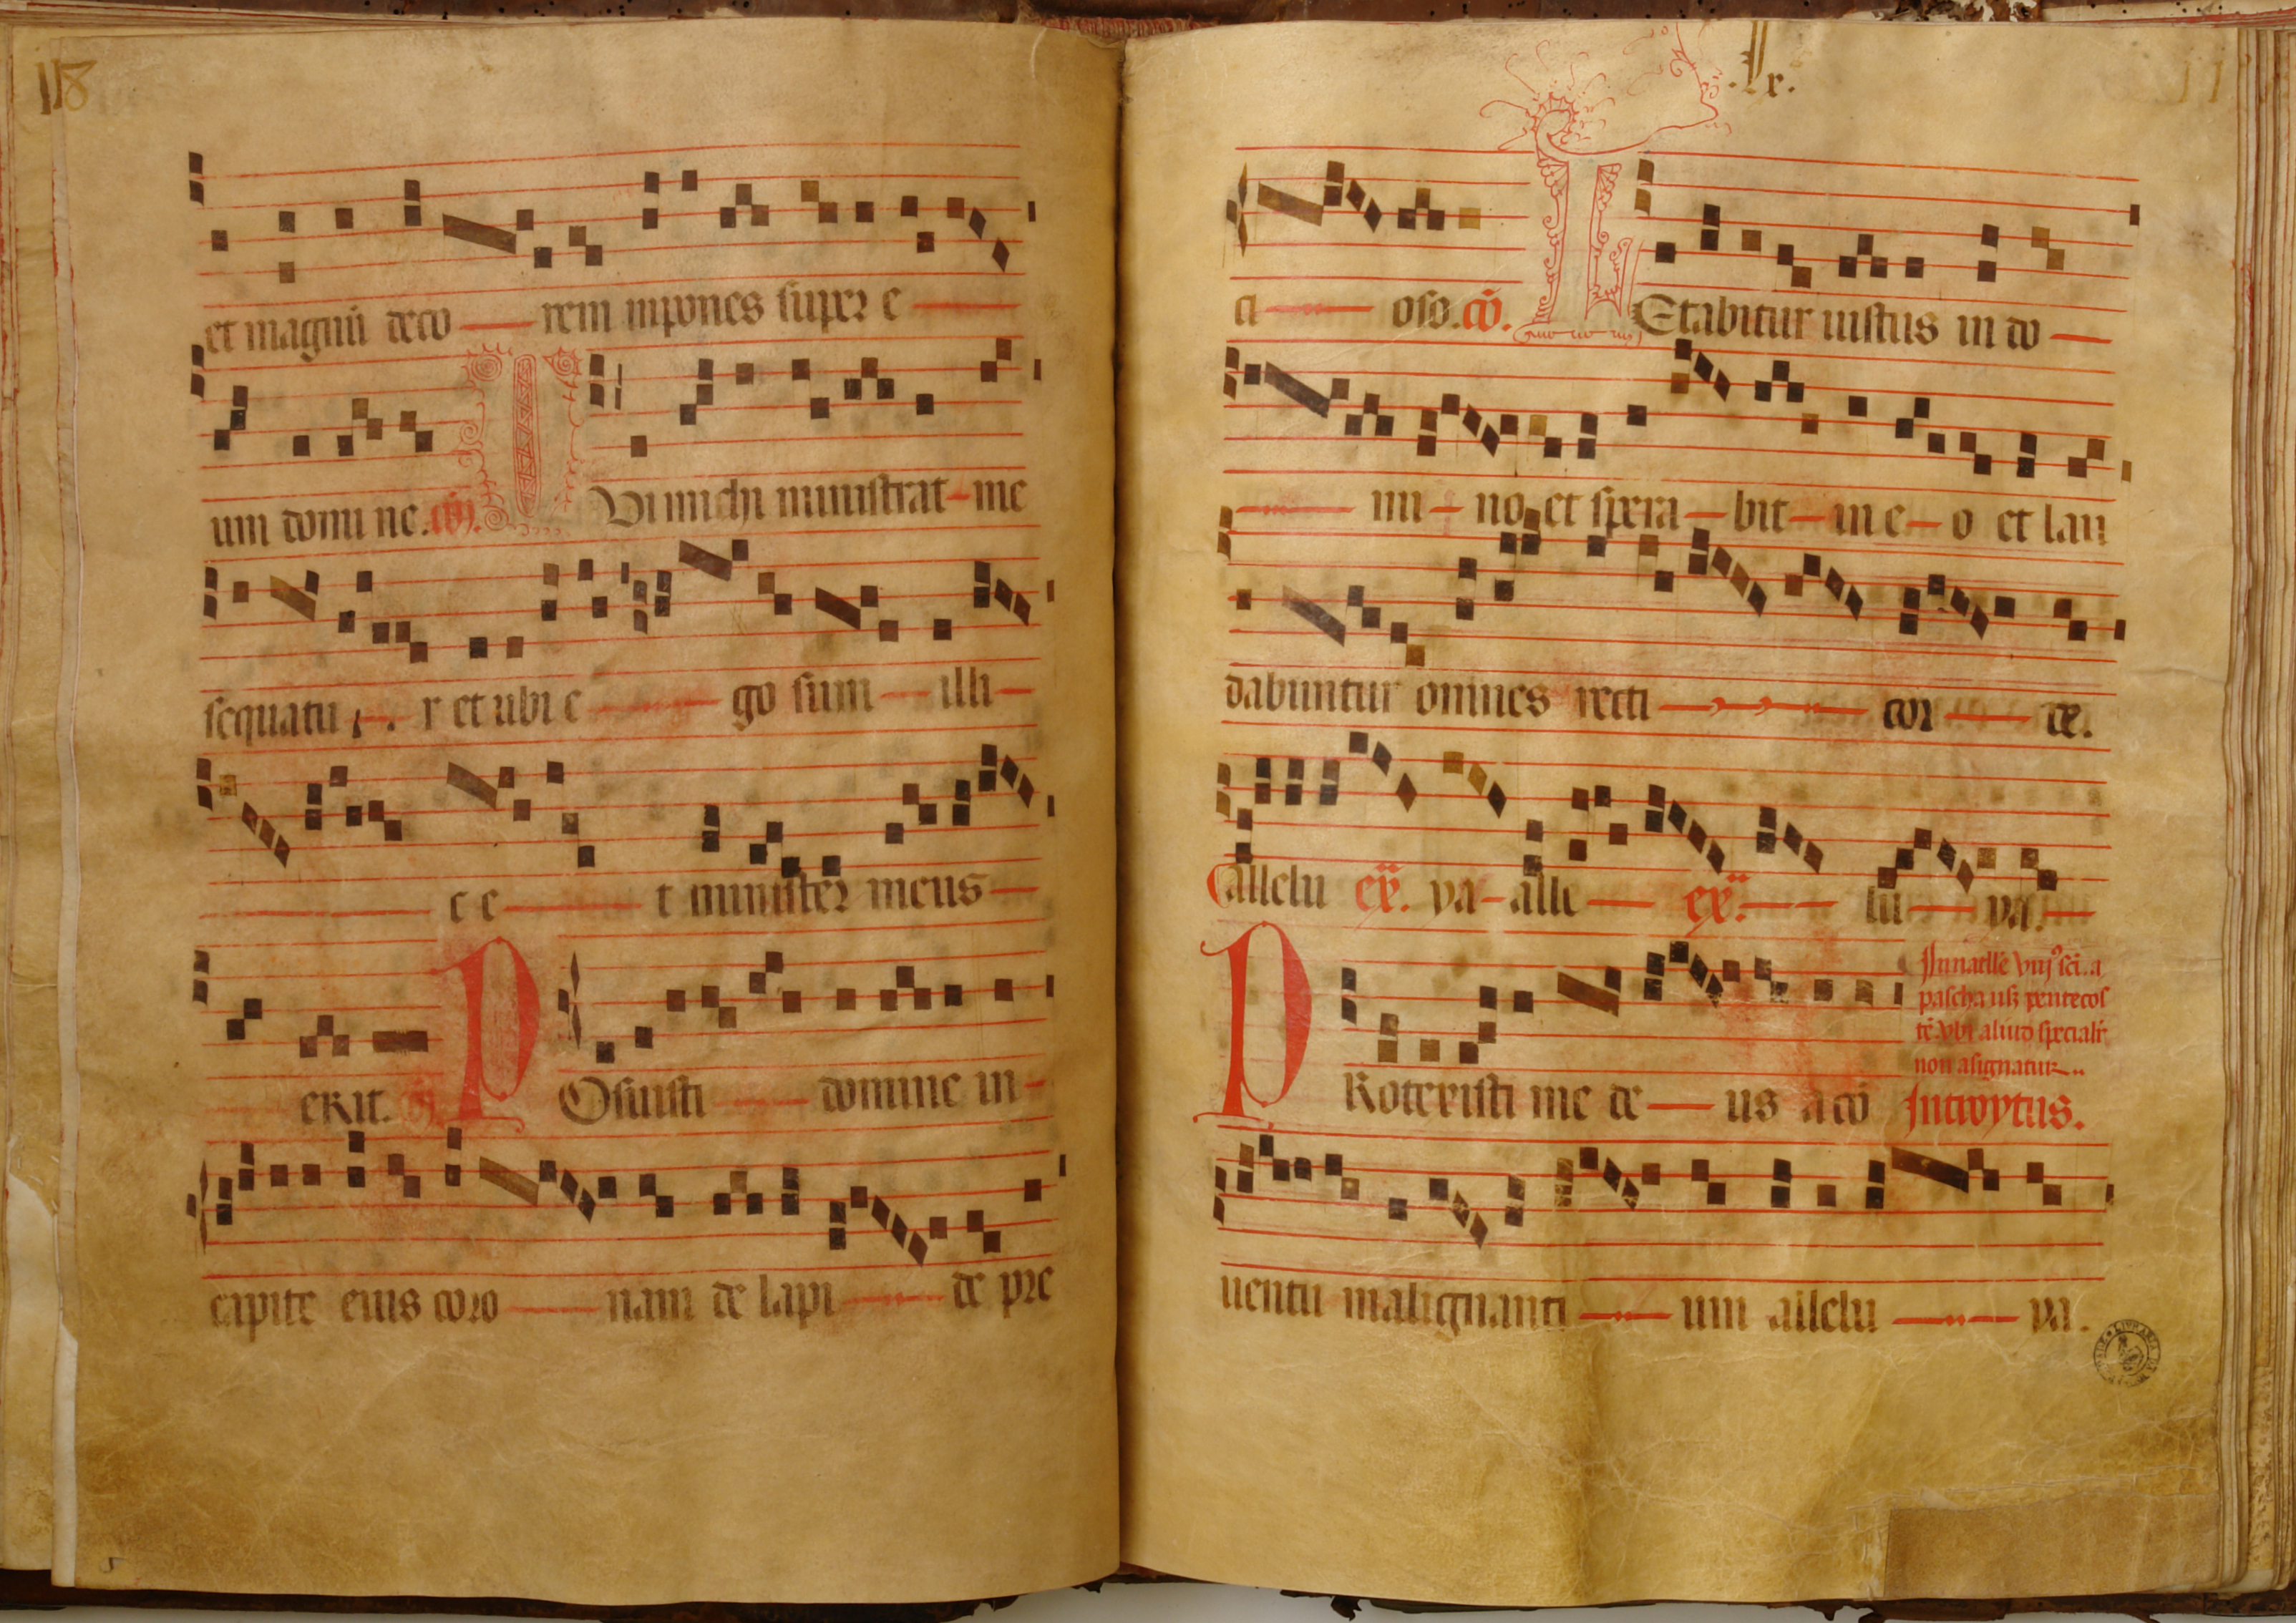 118
et magnū deco rem inpones super e
um domine. cō.
Qui michi ministrat me
sequatur et ubi ego sum illi
c e t minister meus
erit. cō. Posuisti domine in
capite eius coro nam de lapi de pre
.lx.
ci oso. cō. Letabitur iustus in do
mi no et spera bit in e o et lau
dabuntur omnes recti cor de.
allelu ex. ya alle ex. lu ya.
In natłe vnıꝰ sci. a
pascha usꝫ pentecos
tē vbi aliud specialr̄
non asignatur
Rotexisti me de us a cō Introytus.
P
uentu malignanti um allelu ya.